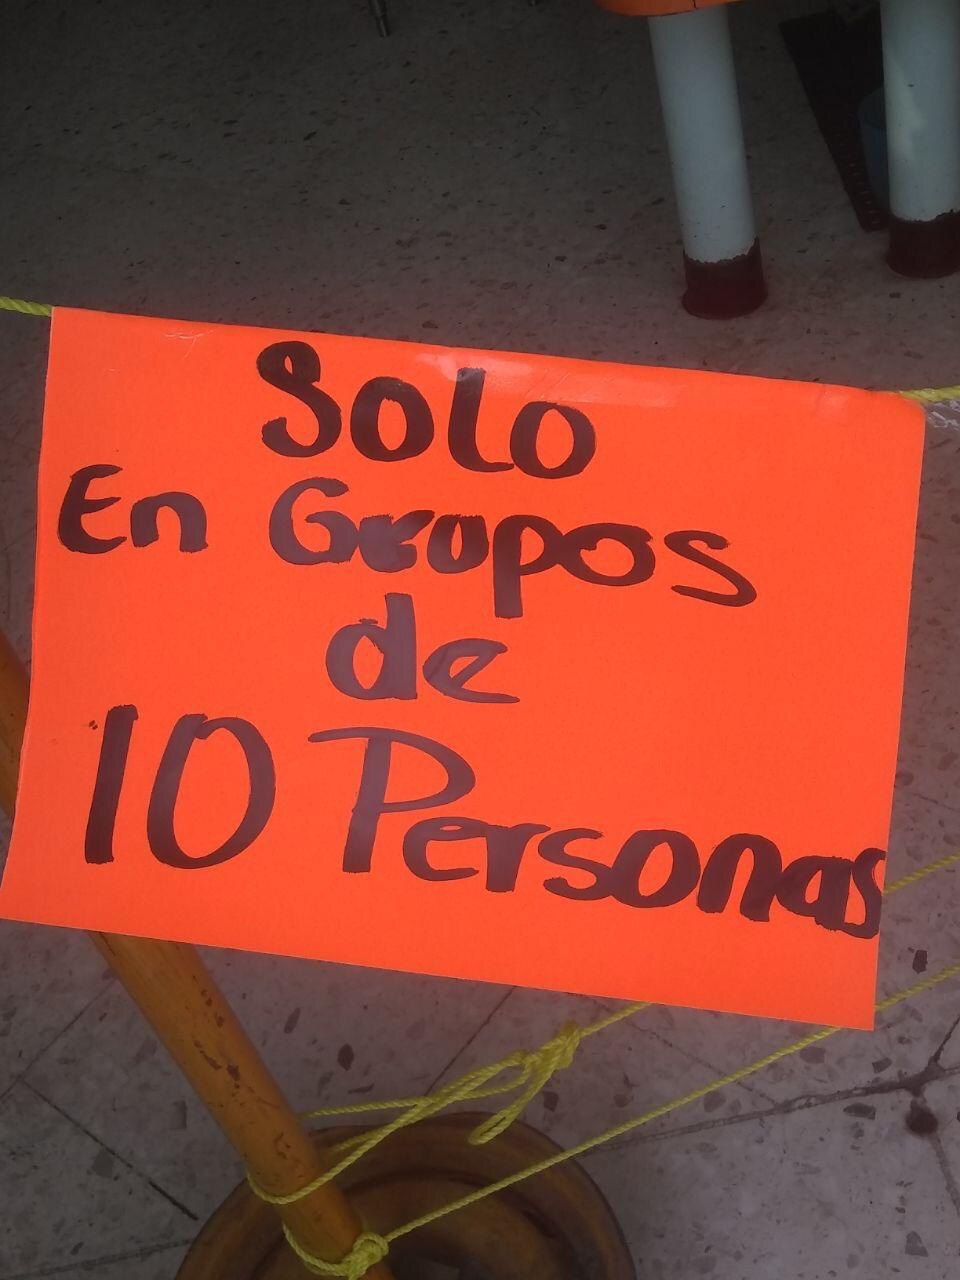 Solo
En Grupos
de
10 Personas